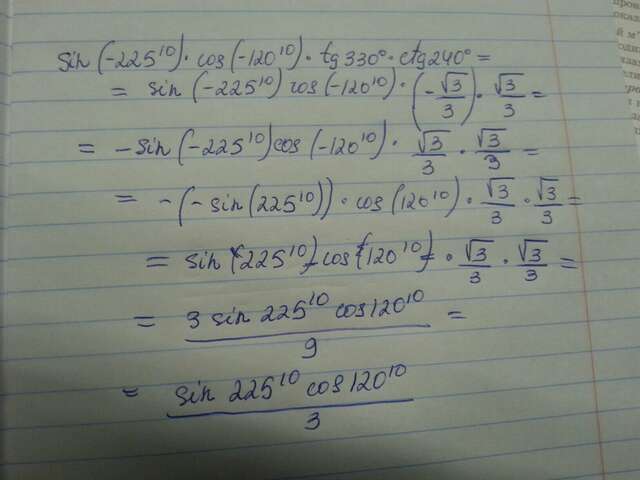 sin(-225¹⁰)·cos(-120¹⁰)·tg330°·ctg240°=
= sin(-225¹⁰)cos(-120¹⁰)·(-√3/3)·√3/3=
= -sin(-225¹⁰)cos(-120¹⁰)·√3/3·√3/3=
= -(-sin(225¹⁰))·cos(120¹⁰)·√3/3·√3/3=
= sin(225¹⁰)-cos(120¹⁰)·√3/3·√3/3=
= 3 sin 225¹⁰ cos120¹⁰/9=
= sin 225¹⁰ cos120¹⁰/3